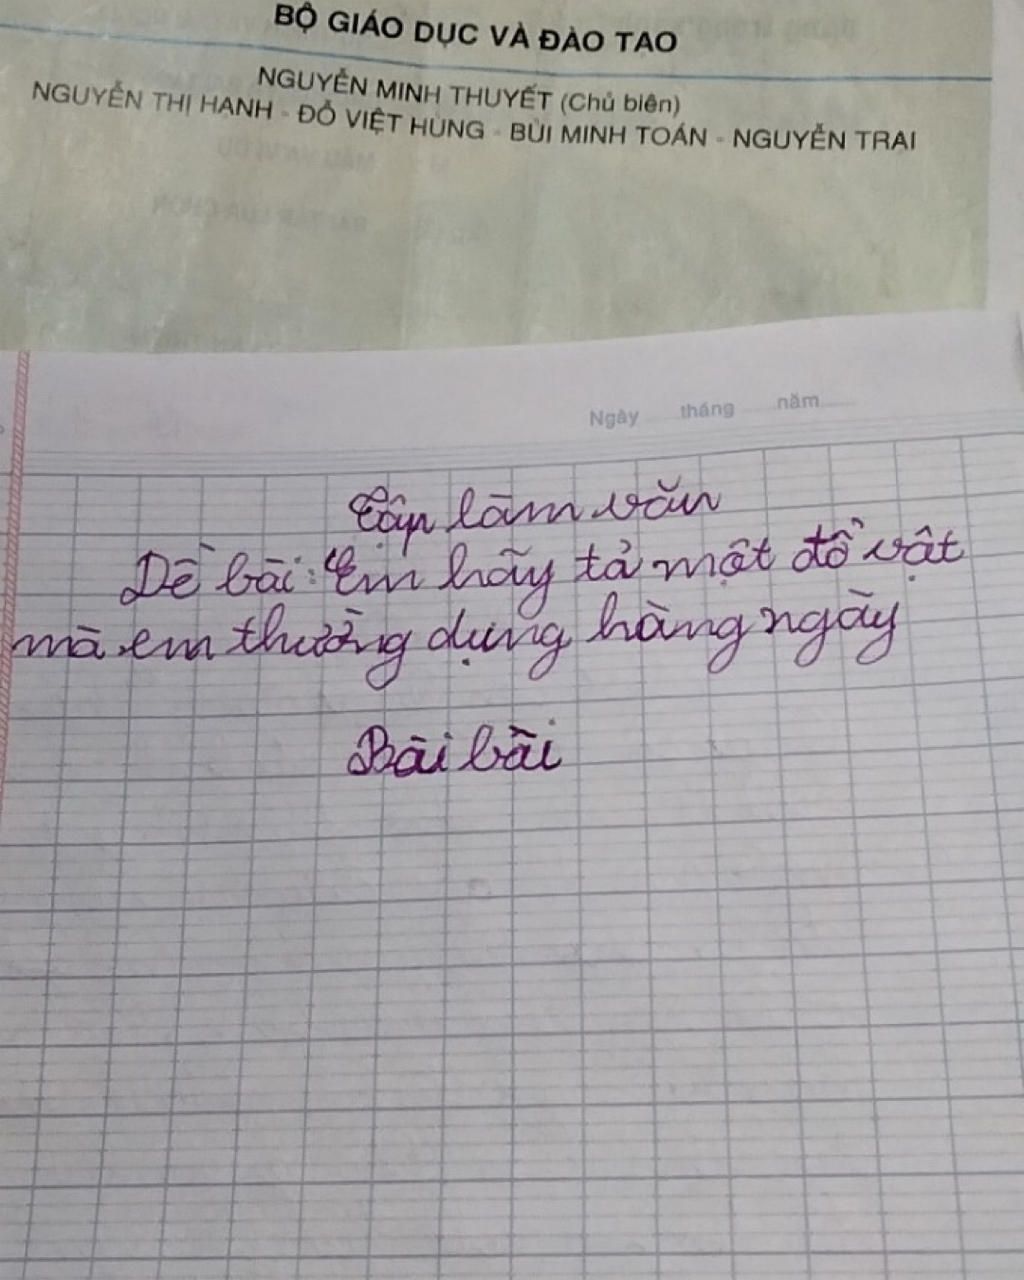 BỘ GIÁO DỤC VÀ ĐÀO TẠO
NGUYỄN MINH THUYẾT (Chủ biên)
NGUYỄN THỊ HẠNH - ĐỖ VIỆT HÙNG - BÙI MINH TOÁN - NGUYỄN TRẠI
Ngày tháng năm
Tập làm văn
Đề bài: Em hãy tả một đồ vật
mà em thường dụng hàng ngày
Bài bài